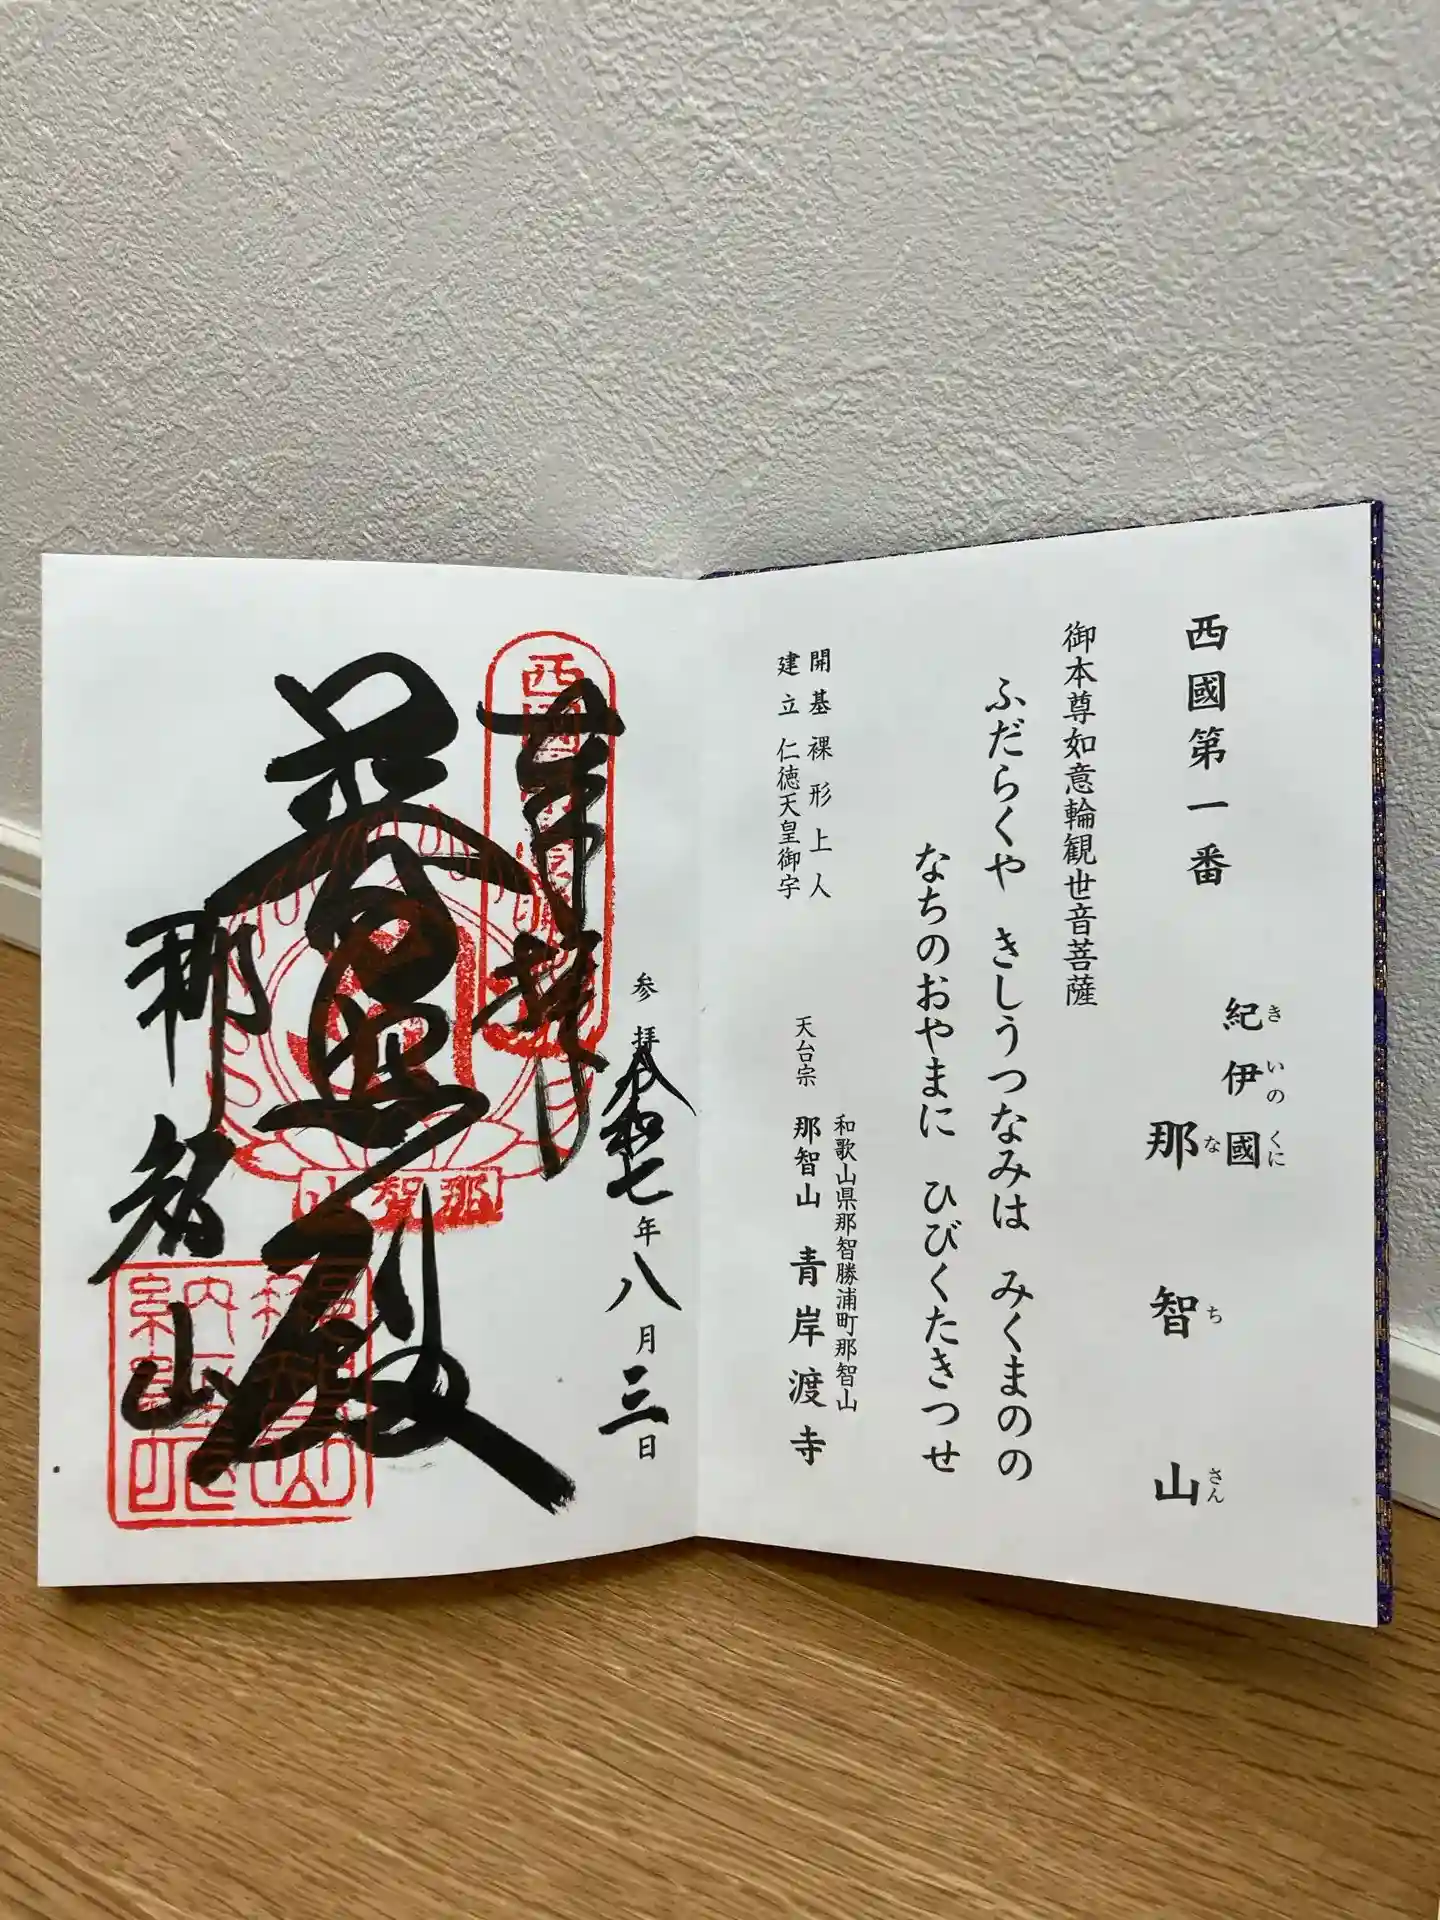 西國第一番
紀伊國
きいのくに
那智山
なちさん
御本尊如意輪観世音菩薩
ふだらくや きしうつなみは みくまのの
なちのおやまに ひびくたきつせ
開基 裸形上人
建立 仁徳天皇御宇
和歌山県那智勝浦町那智山
天台宗 那智山 青岸渡寺
参拝令和七年八月三日
奉拝
普照殿
那智山
那智山